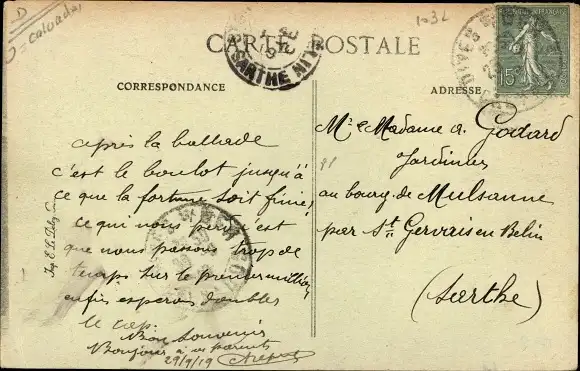 D
= calvados
1-32
CARTE POSTALE
SARTHE
15c
CORRESPONDANCE
ADRESSE
après la ballade
c'est le boulot jusqu'à
ce que la fortune soit finie,
ce qui nous perd c'est
que nous passons trop de
temps sur le premier million
enfin esperons doubler
le cap.
Bon Souvenir
Bonjour à vos parents
29/9/19
Mr et Madame A. Godard
Jardinier
au bourg de Mulsanne
par St Gervais en Belin
(Sarthe)